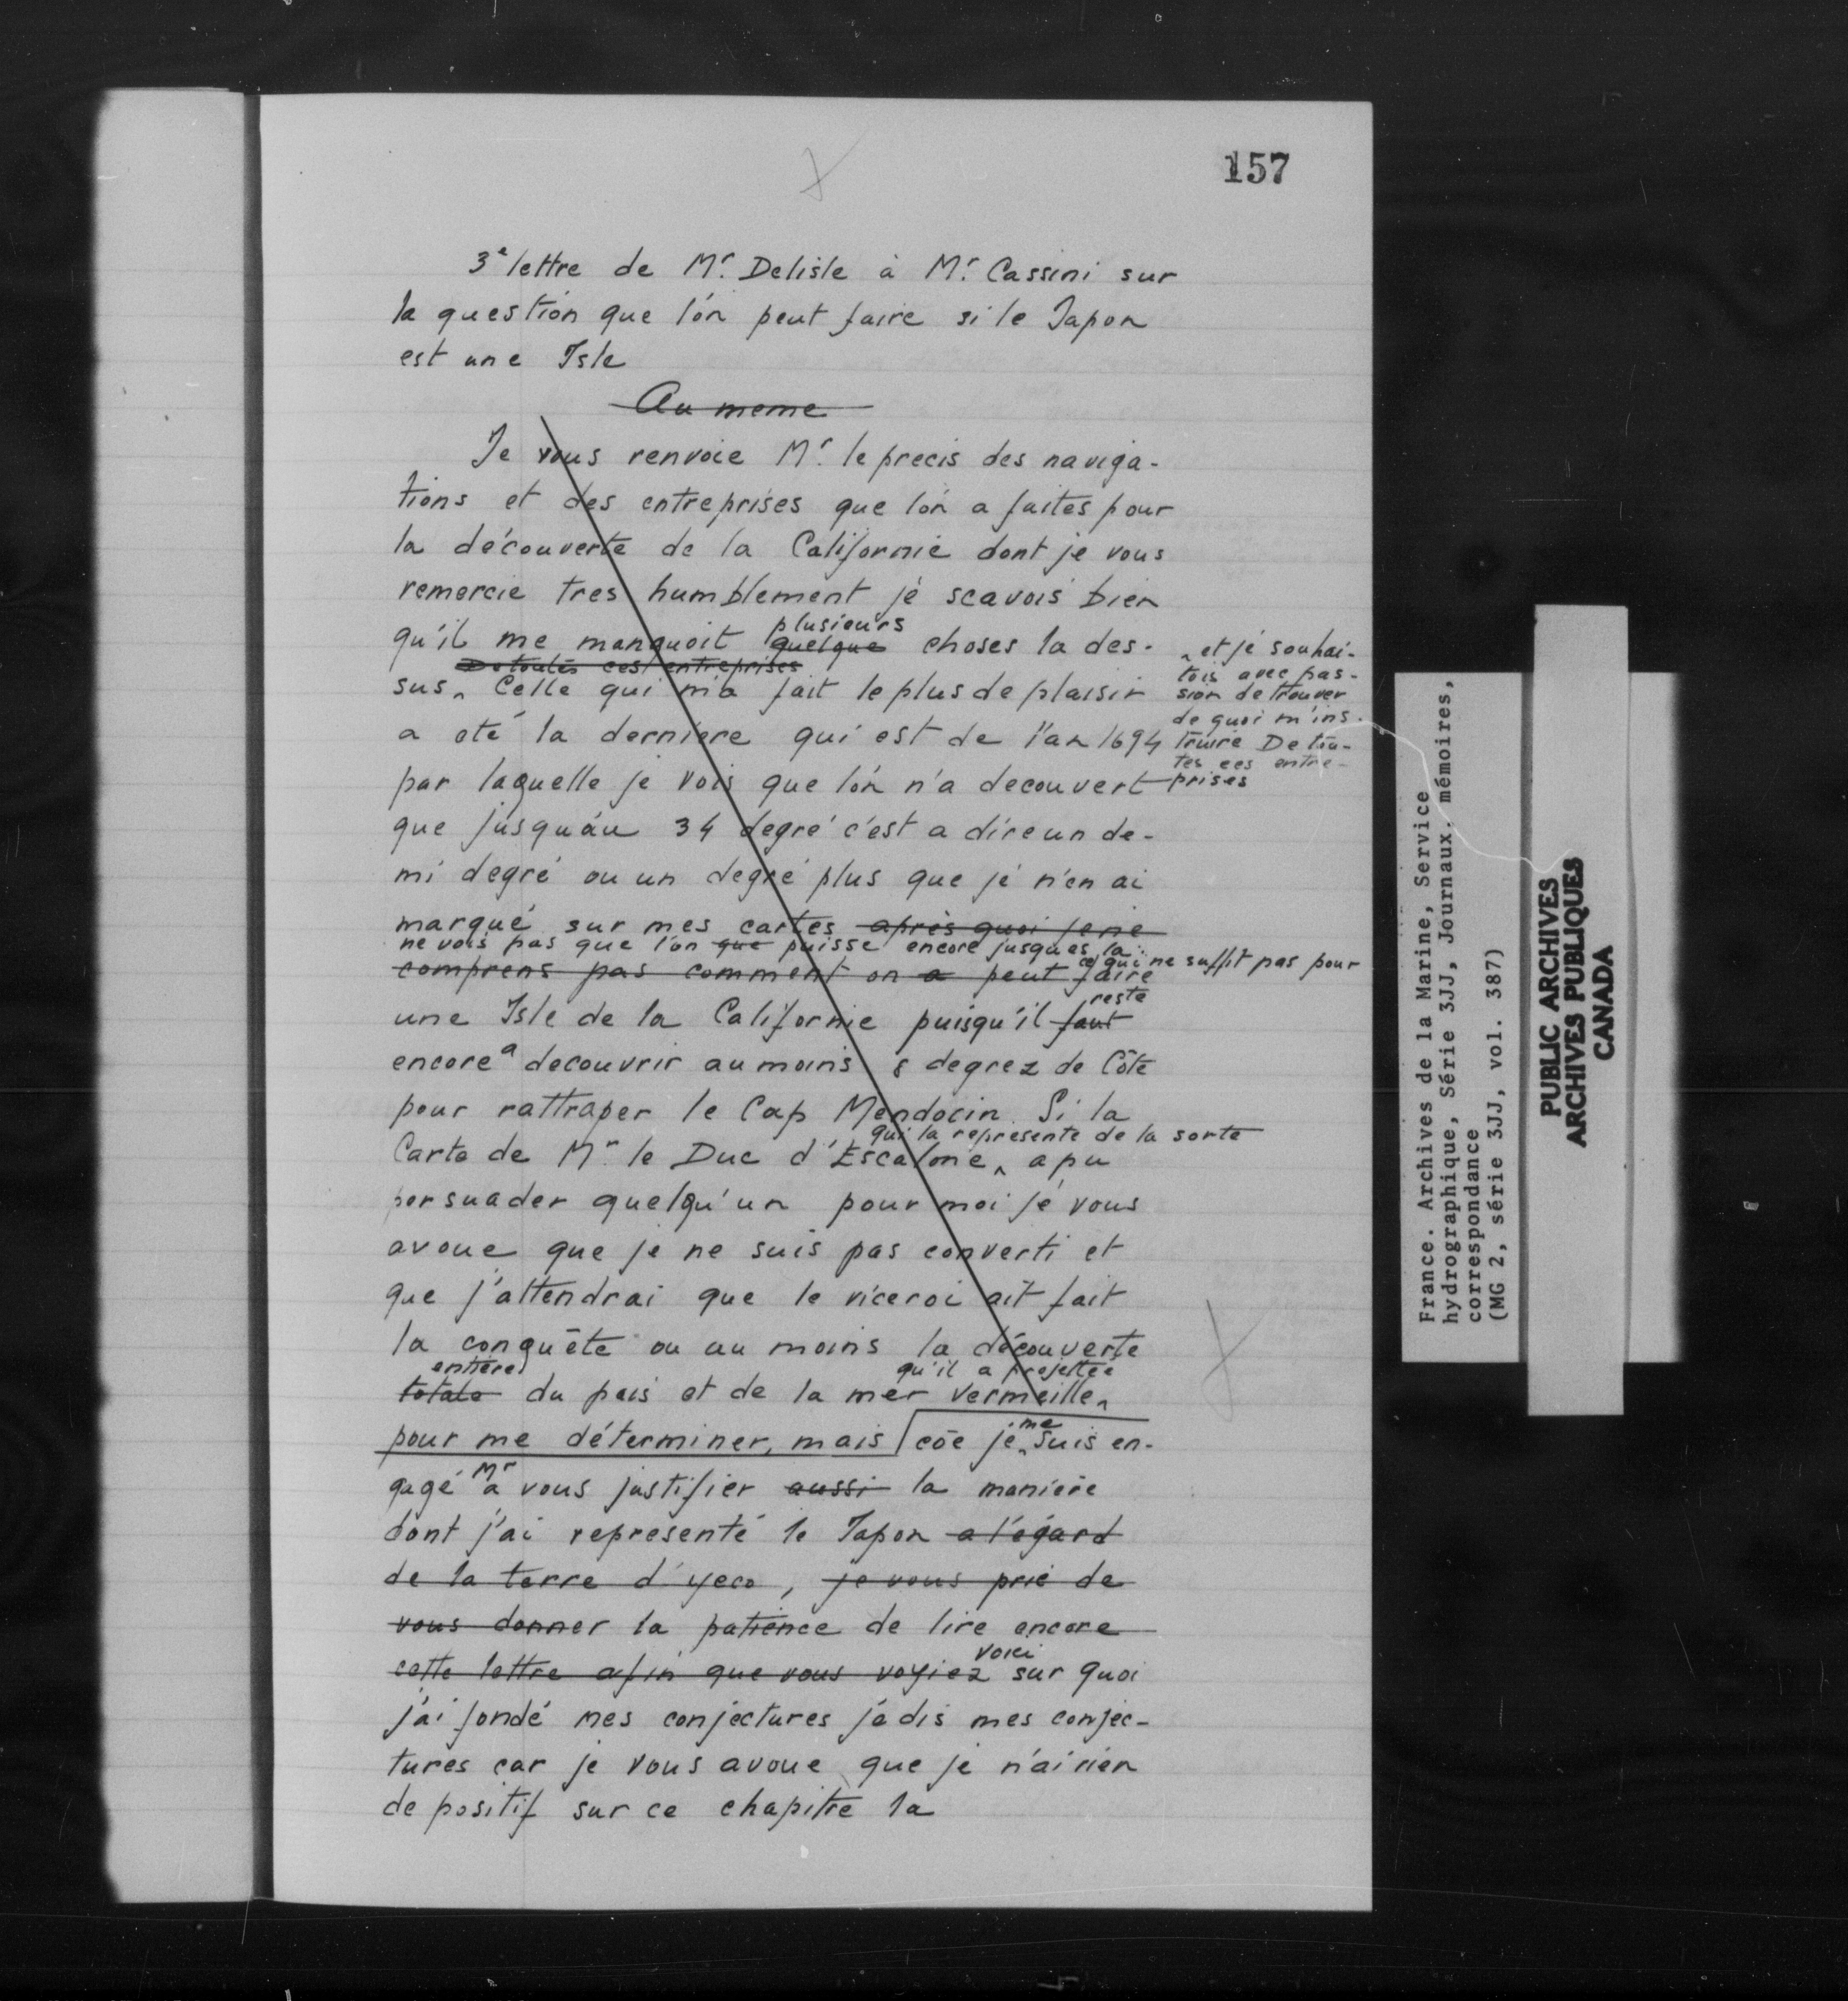 157
3e lettre de Mr. Delisle à Mr. Cassini sur
la question que l'on peut faire si le Japon
est une Isle
Au meme
Je vous renvoie Mr. le precis des naviga-
tions et des entreprises que l'on a faites pour
la découverte de la Californie dont je vous
remercie tres humblement je scavois bien
plusieurs
qu'il me manquoit quelque choses la des-
De toutes ces entreprises
sus ^ Celle qui m'a fait le plus de plaisir
a oté la derniere qui est de l'an 1694
par laquelle je vois que l'on n'a decouvert
^ et je souhai-
tois avec pas-
sion de trouver
de quoi m'ins-
truire De tou-
tes ces entre-
prises
que jusqu'au 34 degré c'est a dire un de-
mi degré ou un degré plus que je n'en ai
marqué sur mes cartes après quoi je ne
ne vois pas que l'on que puisse encore jusques la
ce qui ne suffit pas pour
comprens pas comment on a peut faire
reste
une Isle de la Californie puisqu'il faut
encore a decouvrir au moins 8 degrez de Côte
pour rattraper le Cap Mendocin. Si la
qui la represente de la sorte
Carte de Mr. le Duc d'Escalone ^ a pu
persuader quelqu'un pour moi je vous
avoue que je ne suis pas converti et
que j'attendrai que le viceroi ait fait
la conquête ou au moins la découverte
entiere qu'il a projettée
totale du pais et de la mer vermeille ^
pour me déterminer, mais côe je ^ me suis en-
gagé Mr à vous justifier aussi la maniere
dont j'ai representé le Japon a l'égard
de la terre d'yeco, je vous prie de
vous donner la patience de lire encore
voici
cette lettre afin que vous voyiez sur quoi
j'ai fondé mes conjectures je dis mes conjec-
tures car je vous avoue que je n'ai rien
de positif sur ce chapitre la
France. Archives de la Marine, Service
hydrographique, Série 3JJ, Journaux. mémoires,
correspondance
(MG 2, série 3JJ, vol. 387)
PUBLIC ARCHIVES
ARCHIVES PUBLIQUES
CANADA